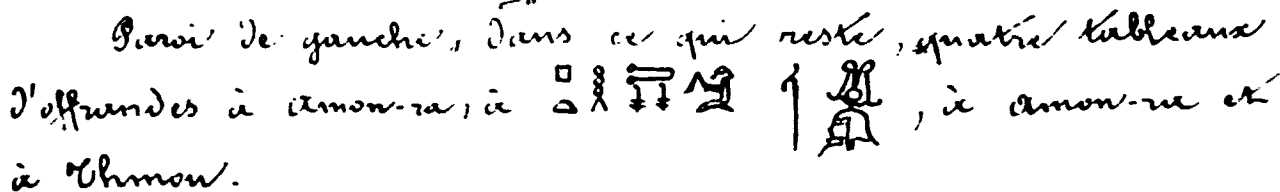 Paroi de gauche, dans ce qui reste, quatre tableaux
d'offrandes à Amon-ra, à , à Amon-ra et
à Thmou.